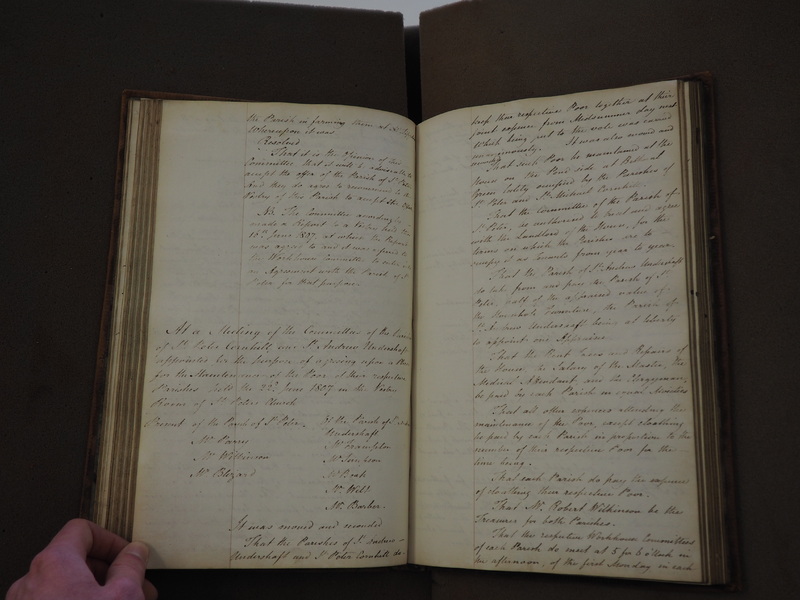 the Parish in farming them at
Whereupon it was
Resolved
That it is the opinion of this
Committee that it will be adviseable to
accept the offer of the Parish of St. Peter
And they do agree to recommend to the
Vestry of this Parish to accept the
NB. The Committee accordingly
made a Report to a Vestry held the
16th. June 1807, at which the Report
was agreed to and it was referred to
the Workhouse Committee to enter into
an Agreement with the Parish of St.
Peter for that purpose
At a Meeting of the Committees of the
of St. Peter Cornhill and St. Andrew Undershaft
appointed for the purpose of agreeing upon a Plan
for the Maintenance of the Poor of their respective
Parishes held the 22d. June 1807 in the Vestry
Room of St. Peters Church
Present of the Parish of St. Peter
Of the Parish of St.
Undershaft
Mr.
Mr. Frampton
Mr. Wilkinson
Mr. Simpson
Mr. Blizard
Mr.
Mr.
Mr. Barber.
It was moved and seconded
That the Parishes of St. Andrew
Undershaft and St. Peter Cornhill do
keep their respective Poor together at their
joint expence from Midsummer day next
Which being put to the vote was carried
unanimously. It was also moved and
That such Poor be maintained at the
House on the side at
Green lately occupied by the Parishes of
St. Peter and St. Michael Cornhill.
That the Committee of the Parish of
St. Peter, be authorized to treat and agree
with the Landlord of the House, for the
terms on which the Parishes are to
occupy it as Tenants from year to year.
That the Parish of St. Andrew Undershaft
do take from and pay the Parish of St.
Peter, half of the appraised value of
the Household Furniture, the Parish of
St. Andrew Undershaft being at liberty
to appoint one Appraiser.
That the Rent Taxes and Repairs of
the House the Salary of the Master, the
Medical Attendant, and the Clergyman,
be paid by each Parish in equal Moieties
That all other expences attending the
maintenance of the Poor, except cloathing
be paid by each Parish in proportion to the
number of their respective Poor for the
time being.
That each Parish do pay the expence
of cloathing their respective Poor.
That Mr. Robert Wilkinson be the
Treasurer for both Parishes.
That the respective Workhouse Committees
of each Parish do meet at 5 for 6 oClock in
the afternoon, of the first Monday in each